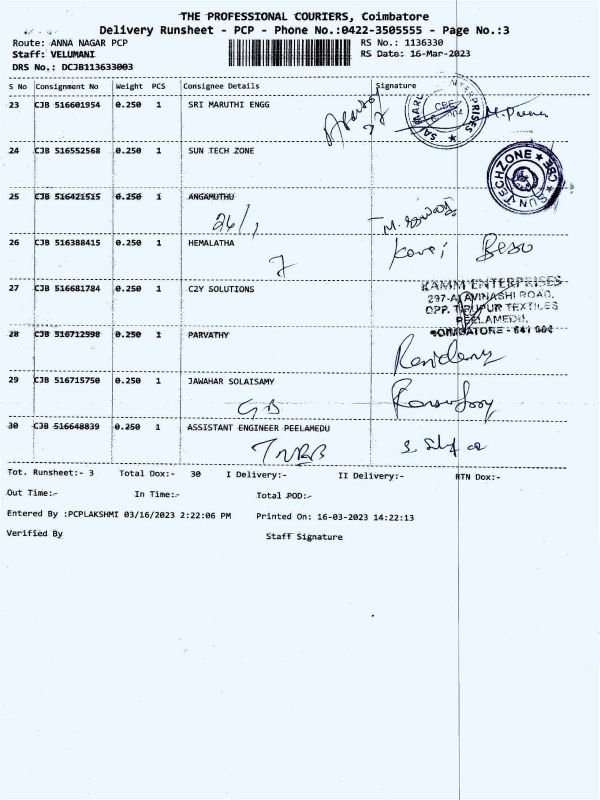 THE PROFESSIONAL COURIERS, Coimbatore
Delivery Runsheet - PCP - Phone No.:0422-3505555 - Page No.:3
Route: ANNA NAGAR PCP RS No.: 1136330
Staff: VELUMANI RS Date: 16-Mar-2023
DRS No.: DCJB113633003
S No Consignment No Weight PCS Consignee Details Signature
23 CJB 516601954 0.250 1 SRI MARUTHI ENGG
24 CJB 516552568 0.250 1 SUN TECH ZONE
SUN TECHZONE ★ CBE ★
25 CJB 516421515 0.250 1 ANGAMUTHU
26/1
26 CJB 516388415 0.250 1 HEMALATHA
7
27 CJB 516681784 0.250 1 C2Y SOLUTIONS
KAMM ENTERPRISES
297-A, AVINASHI ROAD,
OPP. TIRUPUR TEXTILES
PEELAMEDU,
COIMBATORE - 641 004
28 CJB 516712598 0.250 1 PARVATHY
29 CJB 516715750 0.250 1 JAWAHAR SOLAISAMY
30 CJB 516648839 0.250 1 ASSISTANT ENGINEER PEELAMEDU
Tot. Runsheet:- 3 Total Dox:- 30 I Delivery:- II Delivery:- RTN Dox:-
Out Time:- In Time:- Total POD:-
Entered By :PCPLAKSHMI 03/16/2023 2:22:06 PM Printed On: 16-03-2023 14:22:13
Verified By Staff Signature